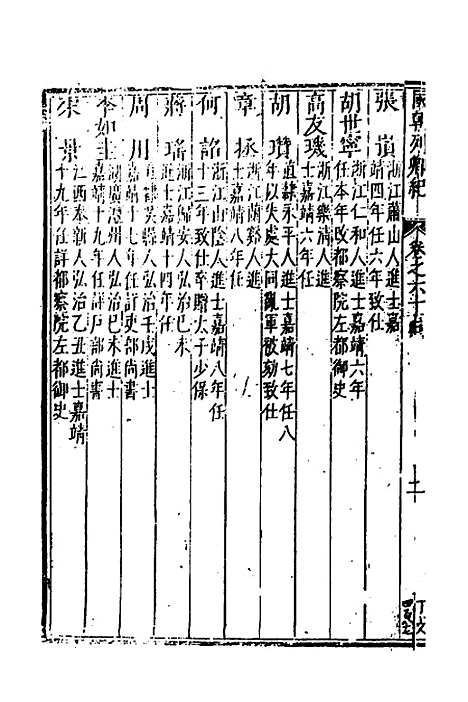 國朝列卿紀 卷之六十
張嵿 浙江蕭山人進士嘉
靖四年任六年致仕
胡世寧 浙江仁和人進士嘉靖六年
任本年改都察院左都御史
高友璣 浙江樂清人進
士嘉靖六年任
胡瓚 直隸永平人進士嘉靖七年任八
年以失處大同亂軍被劾致仕
章拯 浙江蘭谿人進
士嘉靖八年任
何詔 浙江山陰人進士嘉靖八年任
十三年致仕卒贈太子少保
蔣瑤 浙江歸安人弘治己未
進士嘉靖十四年任
周用 直隸吳江人弘治壬戌進士
嘉靖十七年任詳吏部尚書
李如圭 湖廣澧州人弘治己未進士
嘉靖十九年任詳戶部尚書
宋景 江西奉新人弘治乙丑進士嘉靖
十九年任詳都察院左都御史